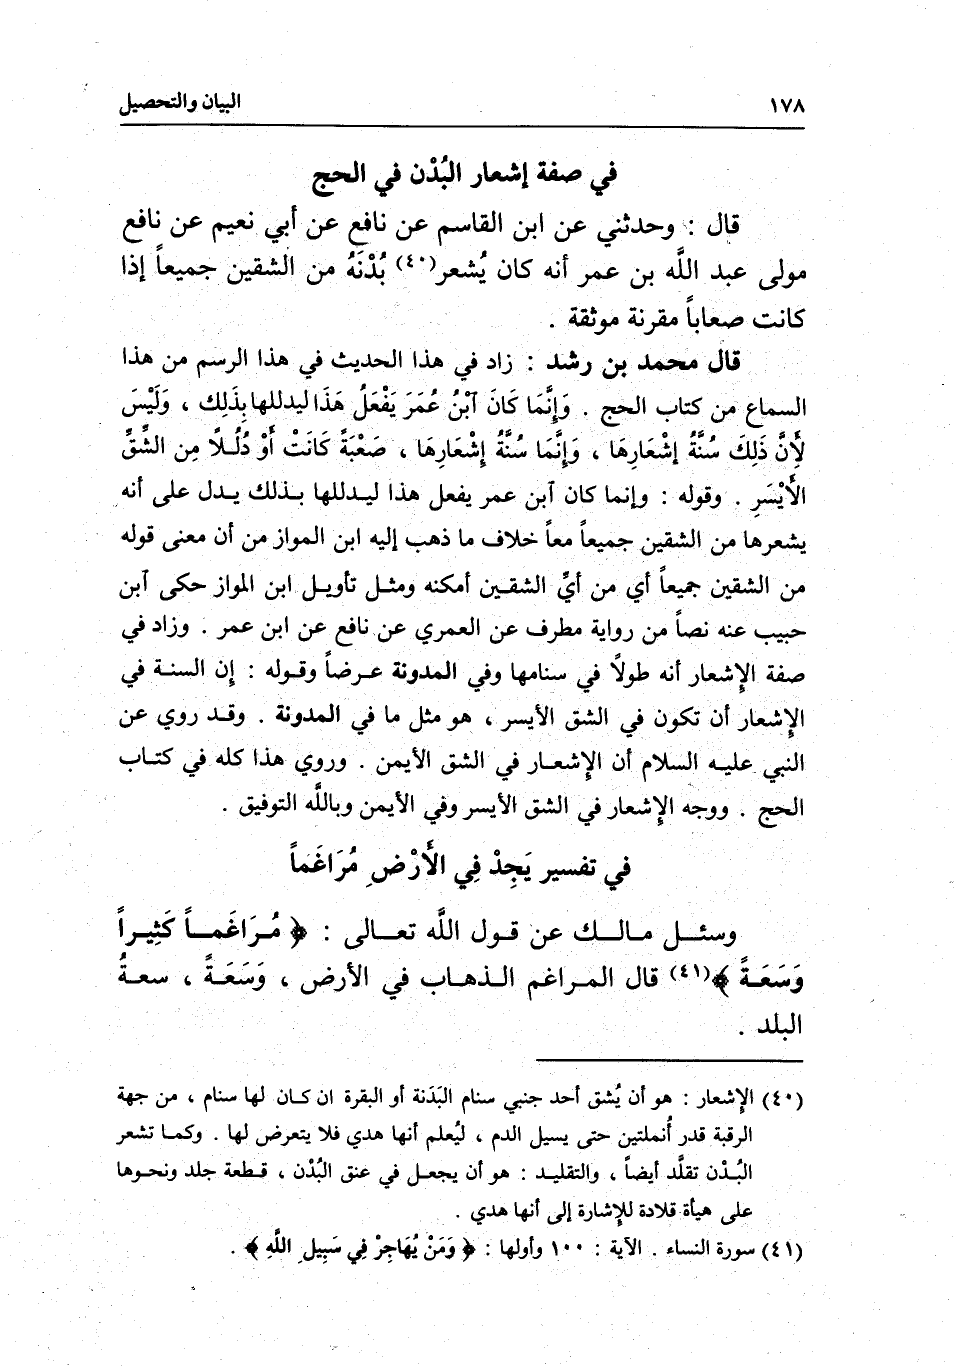 ١٧٨ البيان والتحصيل
في صفة إشعار البُدْن في الحج
قال : وحدثني عن ابن القاسم عن نافع عن أبي نعيم عن نافع
مولى عبد اللَّه بن عمر أنه كان يُشعر(٤٠) بُدْنَهُ من الشقين جميعاً إذا
كانت صعاباً مقرنة موثقة .
قال محمد بن رشد : زاد في هذا الحديث في هذا الرسم من هذا
السماع من كتاب الحج . وَإِنَّمَا كَانَ آبْنُ عُمَرَ يَفْعَلُ هَذَا ليدللها بِذَلِك ، وَلَيْسَ
لأِنَّ ذَلِكَ سُنَّةُ إشْعَارِهَا ، وَإِنَّمَا سُنَّةُ إِشْعَارِهَا ، صَعْبَةً كَانَتْ أَوْ ذُلُـلاً مِن الشِّقِّ
الأَيْسَرِ . وقوله : وإنما كان آبن عمر يفعل هذا ليـدللها بـذلك يـدل على أنه
يشعرها من الشقين جميعاً معاً خلاف ما ذهب إليه ابن المواز من أن معنى قوله
من الشقين جميعاً أي من أيِّ الشقـين أمكنه ومثـل تأويـل ابن المواز حكى آبن
حبيب عنه نصاً من رواية مطرف عن العمري عن نافع عن ابن عمر . وزاد في
صفة الإشعار أنه طولاً في سنامها وفي المدونة عـرضاً وقـوله : إن السنـة في
الإشعار أن تكون في الشق الأيسر ، هو مثل ما في المدونة . وقـد روي عن
النبي عليـه السلام أن الإشعـار في الشق الأيمن . وروي هذا كله في كتـاب
الحج . ووجه الإشعار في الشق الأيسر وفي الأيمن وباللَّه التوفيق .
في تفسير يَجِدْ فِي الأَرْضِ مُرَاغَماً
وسئـل مـالـك عن قـول اللَّه تعـالى : ﴿ مُـرَاغَمـاً كَثِيـراً
وَسَعَـةً ﴾(٤١) قال المـراغم الـذهـاب في الأرض ، وَسَعَـةً ، سعـةُ
البلد .
(٤٠) الإشعار : هو أن يُشق أحد جنبي سنام البَدَنة أو البقرة ان كـان لها سنام ، من جهة
الرقبة قدر أُنملتين حتى يسيل الدم ، ليُعلم أنها هدي فلا يتعرض لها . وكمـا تشعر
البُـدْن تقلَّد أيضاً ، والتقليـد : هو أن يجعـل في عنق البُدْن ، قـطعة جلد ونحـوها
على هيأة قلادة للإشارة إلى أنها هدي .
(٤١) سورة النساء . الآية : ١٠٠ وأولها : ﴿ وَمَنْ يُهَاجِرْ فِي سَبِيلِ اللَّهِ ﴾ .